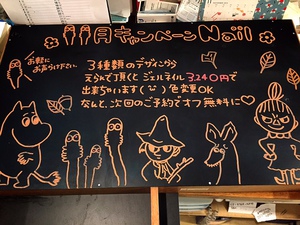 11月キャンペーンNail
お気軽に
お声がけ下さい。
3種類のデザインから
えらんで頂くとジェルネイル3,240円で
出来ちゃいます(^^)色変更OK
なんと、次回のご予約でオフ無料に♡